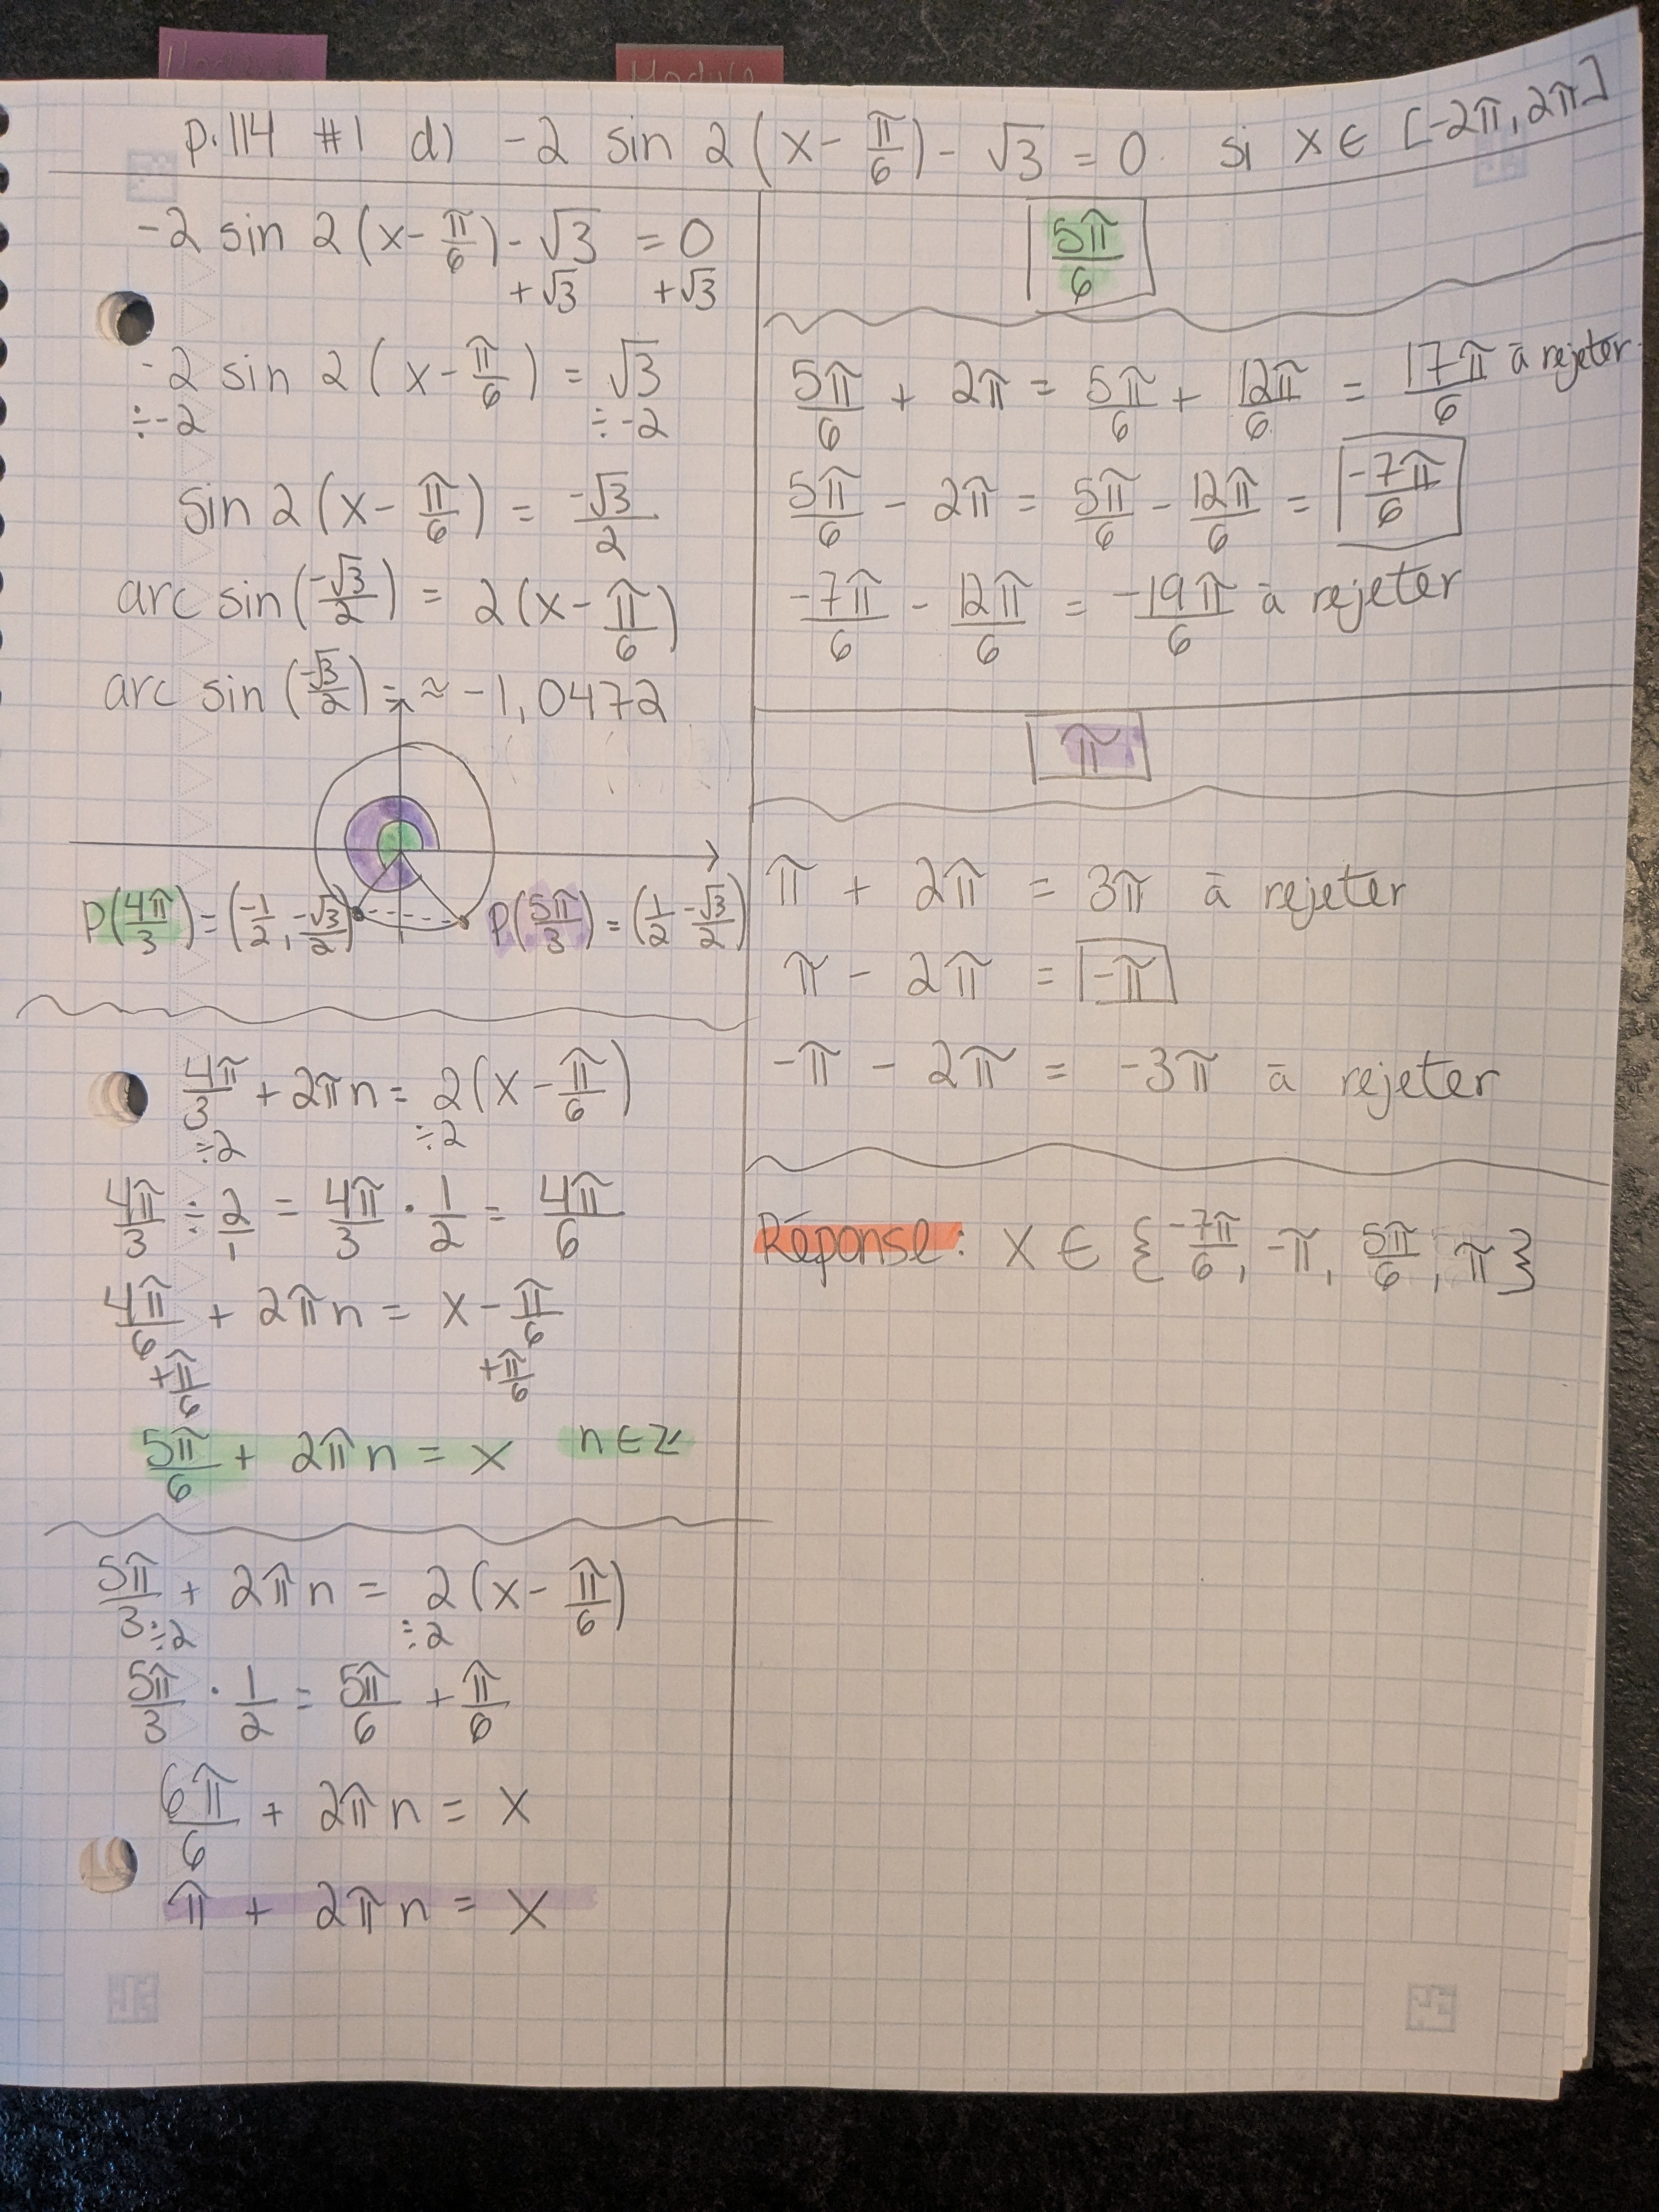 Module
p.114 #1 d) -2 sin 2(x - π/6) - √3 = 0 si x ∈ [-2π, 2π]
-2 sin 2(x - π/6) - √3 = 0
+√3 +√3
-2 sin 2(x - π/6) = √3
÷-2 ÷-2
sin 2(x - π/6) = -√3/2
arc sin(-√3/2) = 2(x - π/6)
arc sin(-√3/2) = ≈ -1,0472
P(4π/3) = (-1/2, -√3/2) P(5π/3) = (1/2 -√3/2)
4π/3 + 2πn = 2(x - π/6)
÷2 ÷2
4π/3 ÷ 2/1 = 4π/3 · 1/2 = 4π/6
4π/6 + 2πn = x - π/6
+π/6 +π/6
5π/6 + 2πn = x n ∈ ℤ
5π/3 + 2πn = 2(x - π/6)
÷2 ÷2
5π/3 · 1/2 = 5π/6 + π/6
6π/6 + 2πn = x
π + 2πn = x
5π/6
5π/6 + 2π = 5π/6 + 12π/6 = 17π/6 à rejeter
5π/6 - 2π = 5π/6 - 12π/6 = -7π/6
-7π/6 - 12π/6 = -19π/6 à rejeter
π
π + 2π = 3π à rejeter
π - 2π = -π
-π - 2π = -3π à rejeter
Réponse: x ∈ {-7π/6, -π, 5π/6, π}